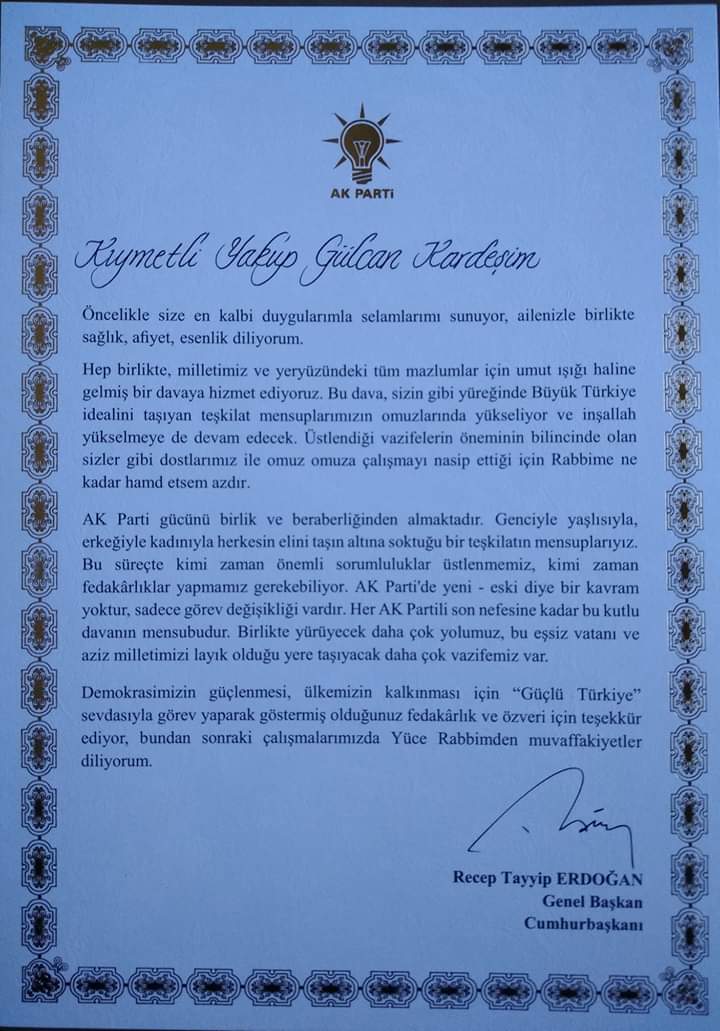 AK PARTİ
Kıymetli Yakup Gülcan Kardeşim
Öncelikle size en kalbi duygularımla selamlarımı sunuyor, ailenizle birlikte
sağlık, afiyet, esenlik diliyorum.
Hep birlikte, milletimiz ve yeryüzündeki tüm mazlumlar için umut ışığı haline
gelmiş bir davaya hizmet ediyoruz. Bu dava, sizin gibi yüreğinde Büyük Türkiye
idealini taşıyan teşkilat mensuplarımızın omuzlarında yükseliyor ve inşallah
yükselmeye de devam edecek. Üstlendiği vazifelerin öneminin bilincinde olan
sizler gibi dostlarımız ile omuz omuza çalışmayı nasip ettiği için Rabbime ne
kadar hamd etsem azdır.
AK Parti gücünü birlik ve beraberliğinden almaktadır. Genciyle yaşlısıyla,
erkeğiyle kadınıyla herkesin elini taşın altına soktuğu bir teşkilatın mensuplarıyız.
Bu süreçte kimi zaman önemli sorumluluklar üstlenmemiz, kimi zaman
fedakârlıklar yapmamız gerekebiliyor. AK Parti'de yeni - eski diye bir kavram
yoktur, sadece görev değişikliği vardır. Her AK Partili son nefesine kadar bu kutlu
davanın mensubudur. Birlikte yürüyecek daha çok yolumuz, bu eşsiz vatanı ve
aziz milletimizi layık olduğu yere taşıyacak daha çok vazifemiz var.
Demokrasimizin güçlenmesi, ülkemizin kalkınması için “Güçlü Türkiye”
sevdasıyla görev yaparak göstermiş olduğunuz fedakârlık ve özveri için teşekkür
ediyor, bundan sonraki çalışmalarımızda Yüce Rabbimden muvaffakiyetler
diliyorum.
Recep Tayyip ERDOĞAN
Genel Başkan
Cumhurbaşkanı